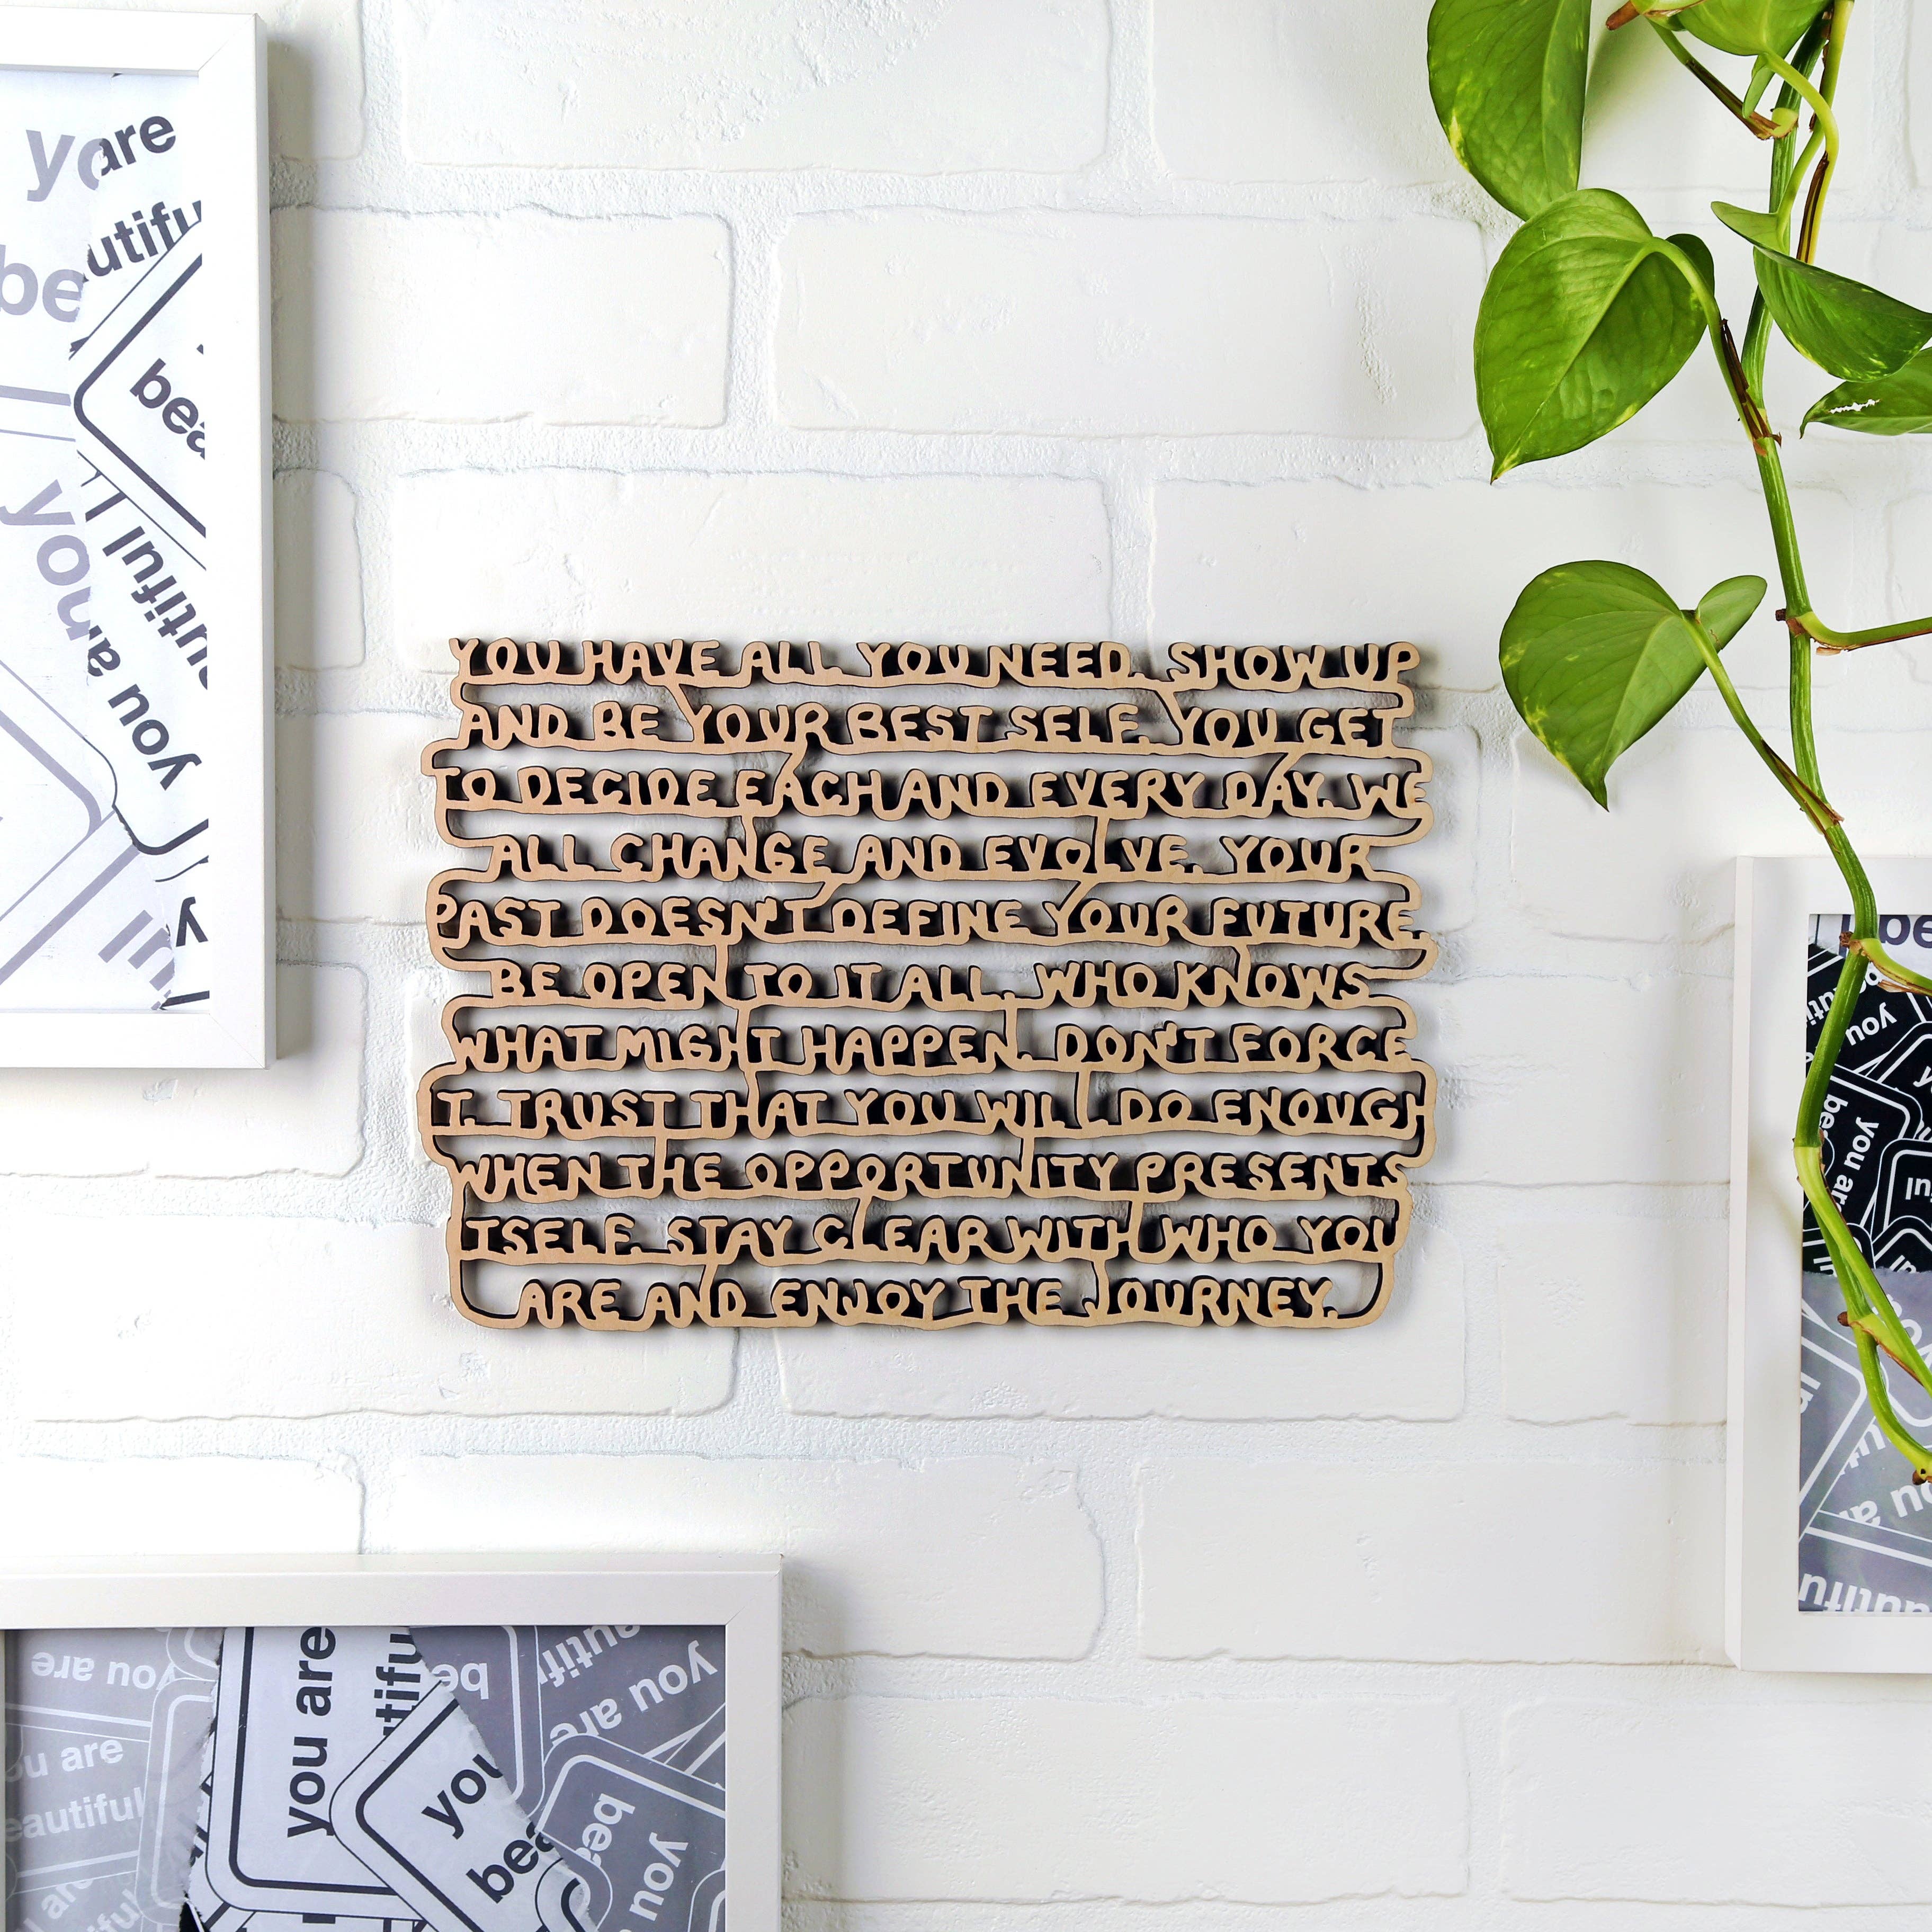 YOU HAVE ALL YOU NEED. SHOW UP
AND BE YOUR BEST SELF. YOU GET
TO DECIDE EACH AND EVERY DAY. WE
ALL CHANGE AND EVOLVE. YOUR
PAST DOESN'T DEFINE YOUR FUTURE.
BE OPEN TO IT ALL. WHO KNOWS
WHAT MIGHT HAPPEN. DON'T FORCE
IT. TRUST THAT YOU WILL DO ENOUGH
WHEN THE OPPORTUNITY PRESENTS
ITSELF. STAY CLEAR WITH WHO YOU
ARE AND ENJOY THE JOURNEY.
are
be
you
you
you are
you are
you are
you
you are
you
you are
you